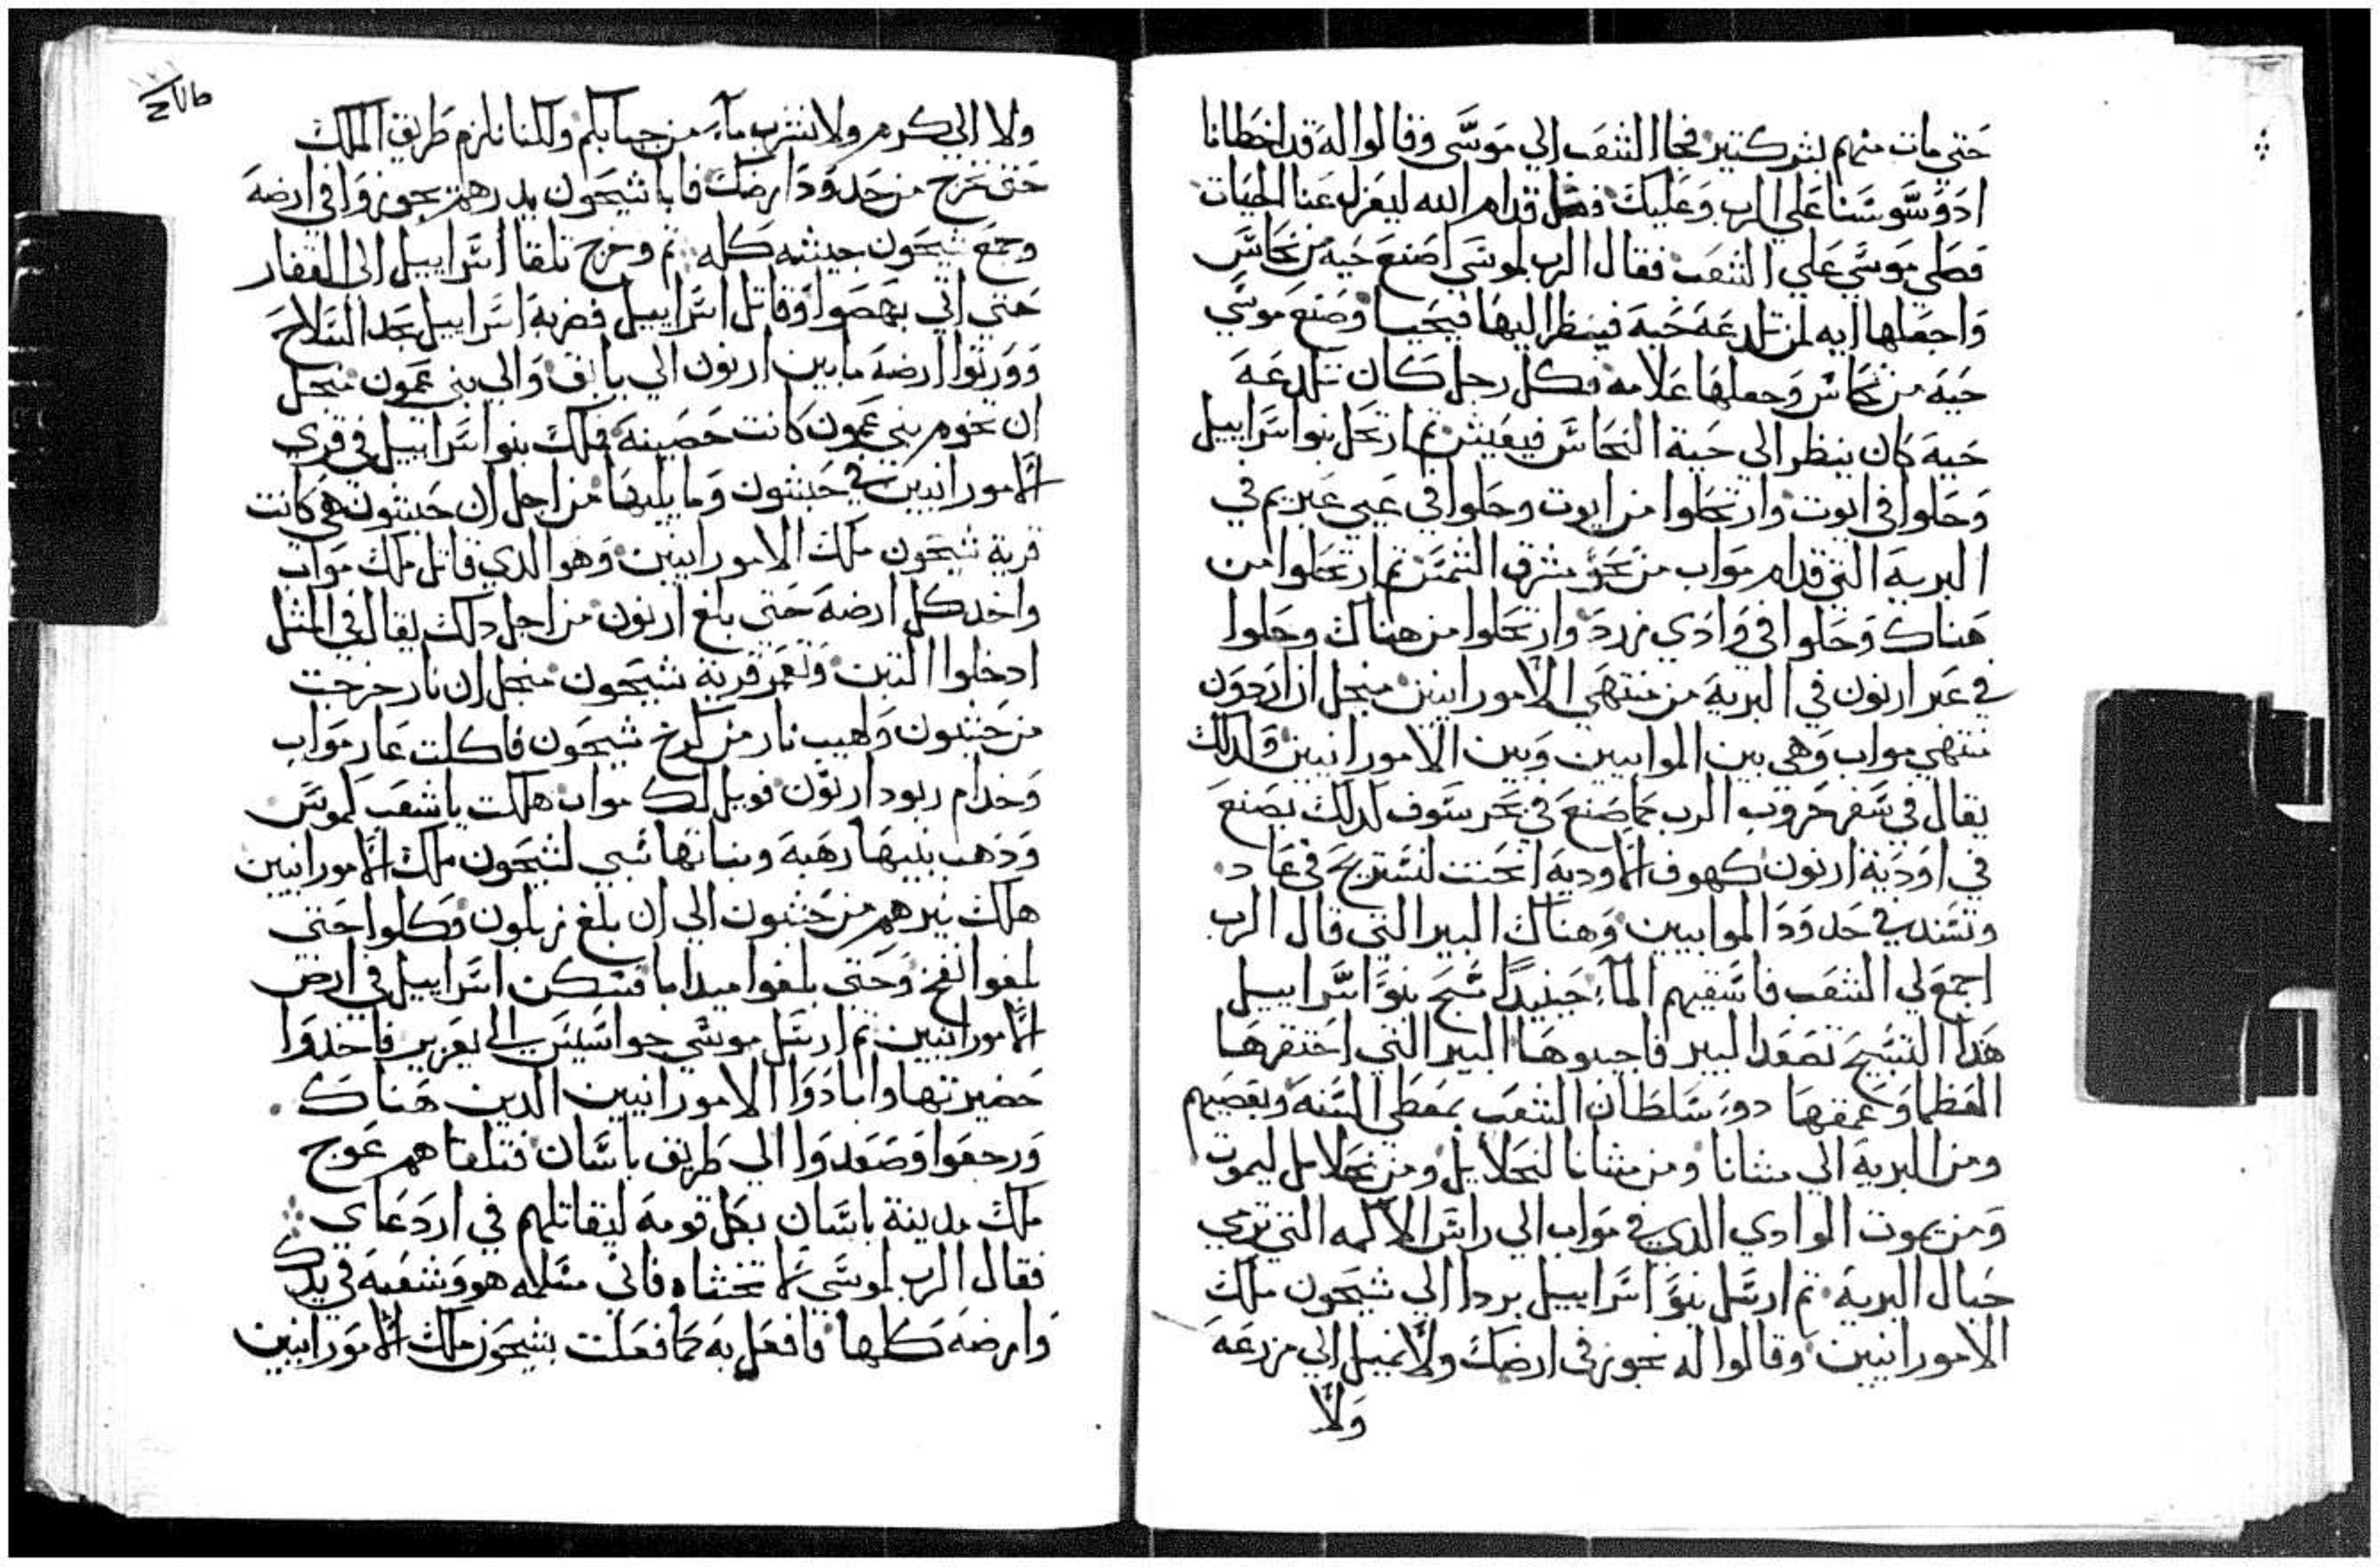 حتي مات منهم بشر كتير فجا الشعب الي موسي وقالوا له قد اخطانا
اد وسوسنا علي الرب وعليك فصل قدام الله ليعزل عنا الحيات
فصلي موسي علي الشعب فقال الرب لموسي اصنع حية من نحاس
واجعلها ايه لمن تلدغه حية فينظر اليها فيحيا وصنع موسي
حية من نحاس وجعلها علامه فكل رجل كان تلدغه
حية كان ينظر الي حية النحاس فيعيش تم ارتحل بنوا اسراييل
وحلوا في ابوت وارتحلوا من ابوت وحلوا في عيي عبريم في
البرية التي قدام مواب من نحو مشرق الشمس تم ارتحلوا من
هناك وحلوا في وادي زرد وارتحلوا من هناك وحلوا
في عبر ارنون في البرية من منتهي الامورانيين منجل ان ارنون
منتهي مواب وهي بين الموابيين وبين الامورانيين ولدلك
يقال في سفر حروب الرب كما صنع في بحر سوف كدلك يصنع
في اودية ارنون كهوف الاودية انحنت لتستريح في عاد
وتسند في حدود الموابيين وهناك البير التي قال الرب
اجمع لي الشعب فاسقيهم المآء حينيدا سبح بنوا اسراييل
هدا التسبيح تصعد البير فاجيبوها البير التي احتفرها
العظما وعمقها دوو سلطان الشعب بمعطي السنة وبعصيهم
ومن البرية الي متنانا ومن متنانا لنحلاييل ومن نحلاييل ليموت
ومن يموت الوادي الدي في مواب الي راس الاكمه التي تري
حيال البرية تم ارسل بنوا اسراييل بردا الي شيحون ملك
الامورانيين وقالوا له نجوز في ارضك ولا نميل الي مزرعة
ولا
ولا الي كرم ولا نشرب مآء من جبابكم ولكنا نلزم طريق الملك
حتي نخرج من حدود ارضك فابا شيحون يدرهم يجوزوا في ارضه
وجمع شيحون جيشه كله تم وخرج تلقا اسراييل الي القفار
حتي اتي بهصوا وقاتل اسراييل فضربه اسراييل بحد السلاح
وورتوا ارضه ما بين ارنون الي يابق والي بني عمون منجل
ان تخوم بني عمون كانت حصينة فملك بنوا اسراييل في قري
الامورانيين في حشبون وما يليها من اجل ان حشبون هي كانت
قرية شيحون ملك الامورانيين وهو الدي قاتل ملك مواب
واخد كل ارضه حتي بلغ ارنون من اجل دلك يقال في المتل
ادخلوا التبن وتعمر قرية شيحون منجل ان نار خرجت
من حشبون ولهيب نار من كرخ شيحون فاكلت عار مواب
وخدام ربود ارنون فويل لك مواب هلكت يا شعب كموس
ودهب بنيها رهبة وبناتها سبي لشيحون ملك الامورانيين
هلك نيرهم من حشبون الي ان بلغ زبلون وكلوا حتي
بلغوا نفح وحتي بلغوا ميدابا فسكن اسراييل في ارض
الامورانيين تم ارسل موسي جواسيس الي يعزير فاخدوا
حضيرتها وابادوا الامورانيين الدين هناك
ورجعوا وصعدوا الي طريق باسان فتلقاهم عوج
ملك مدينة باسان بكل قومه ليقاتلهم في اردعاي
فقال الرب لموسي لا تخشاه فاني مسلمه هو وشعبه في يدك
وارضه كلها فافعل به كما فعلت بشيحون ملك الامورانيين